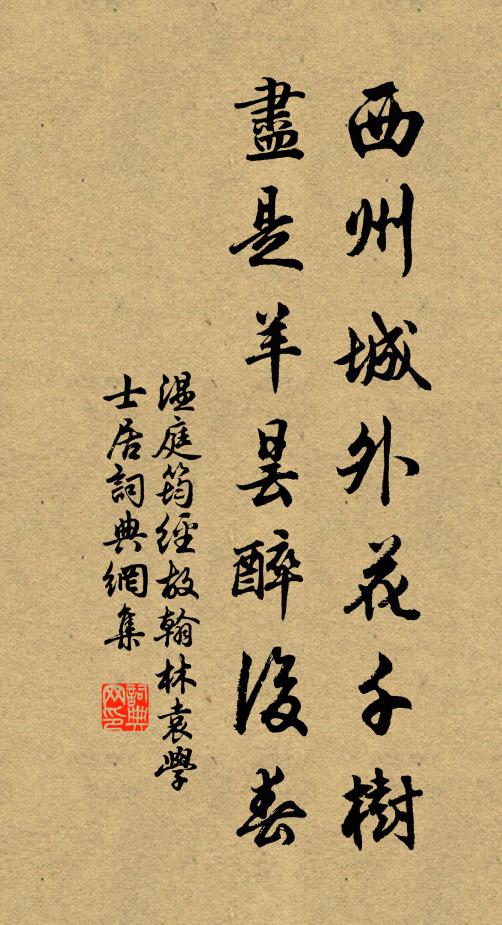 西州城外花千樹
盡是羊昙醉後春
溫庭筠經故翰林袁學
士居詞典網集
詞典
网印